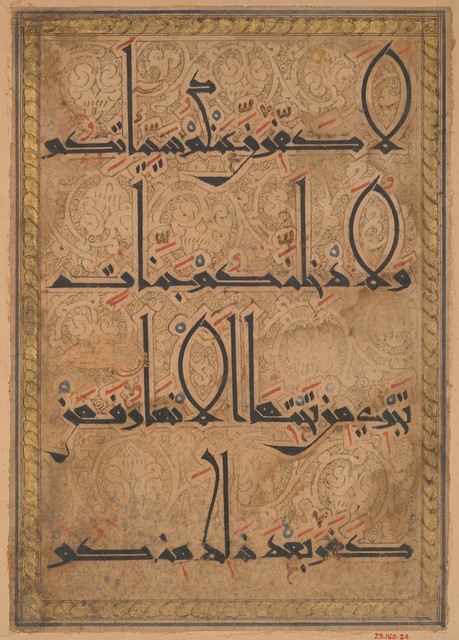 لأكفرن عنكم سيئاتكم
ولأدخلنكم جنات
تجري من تحتها الأنهار فمن
كفر بعد ذلك منكم
29.160.24